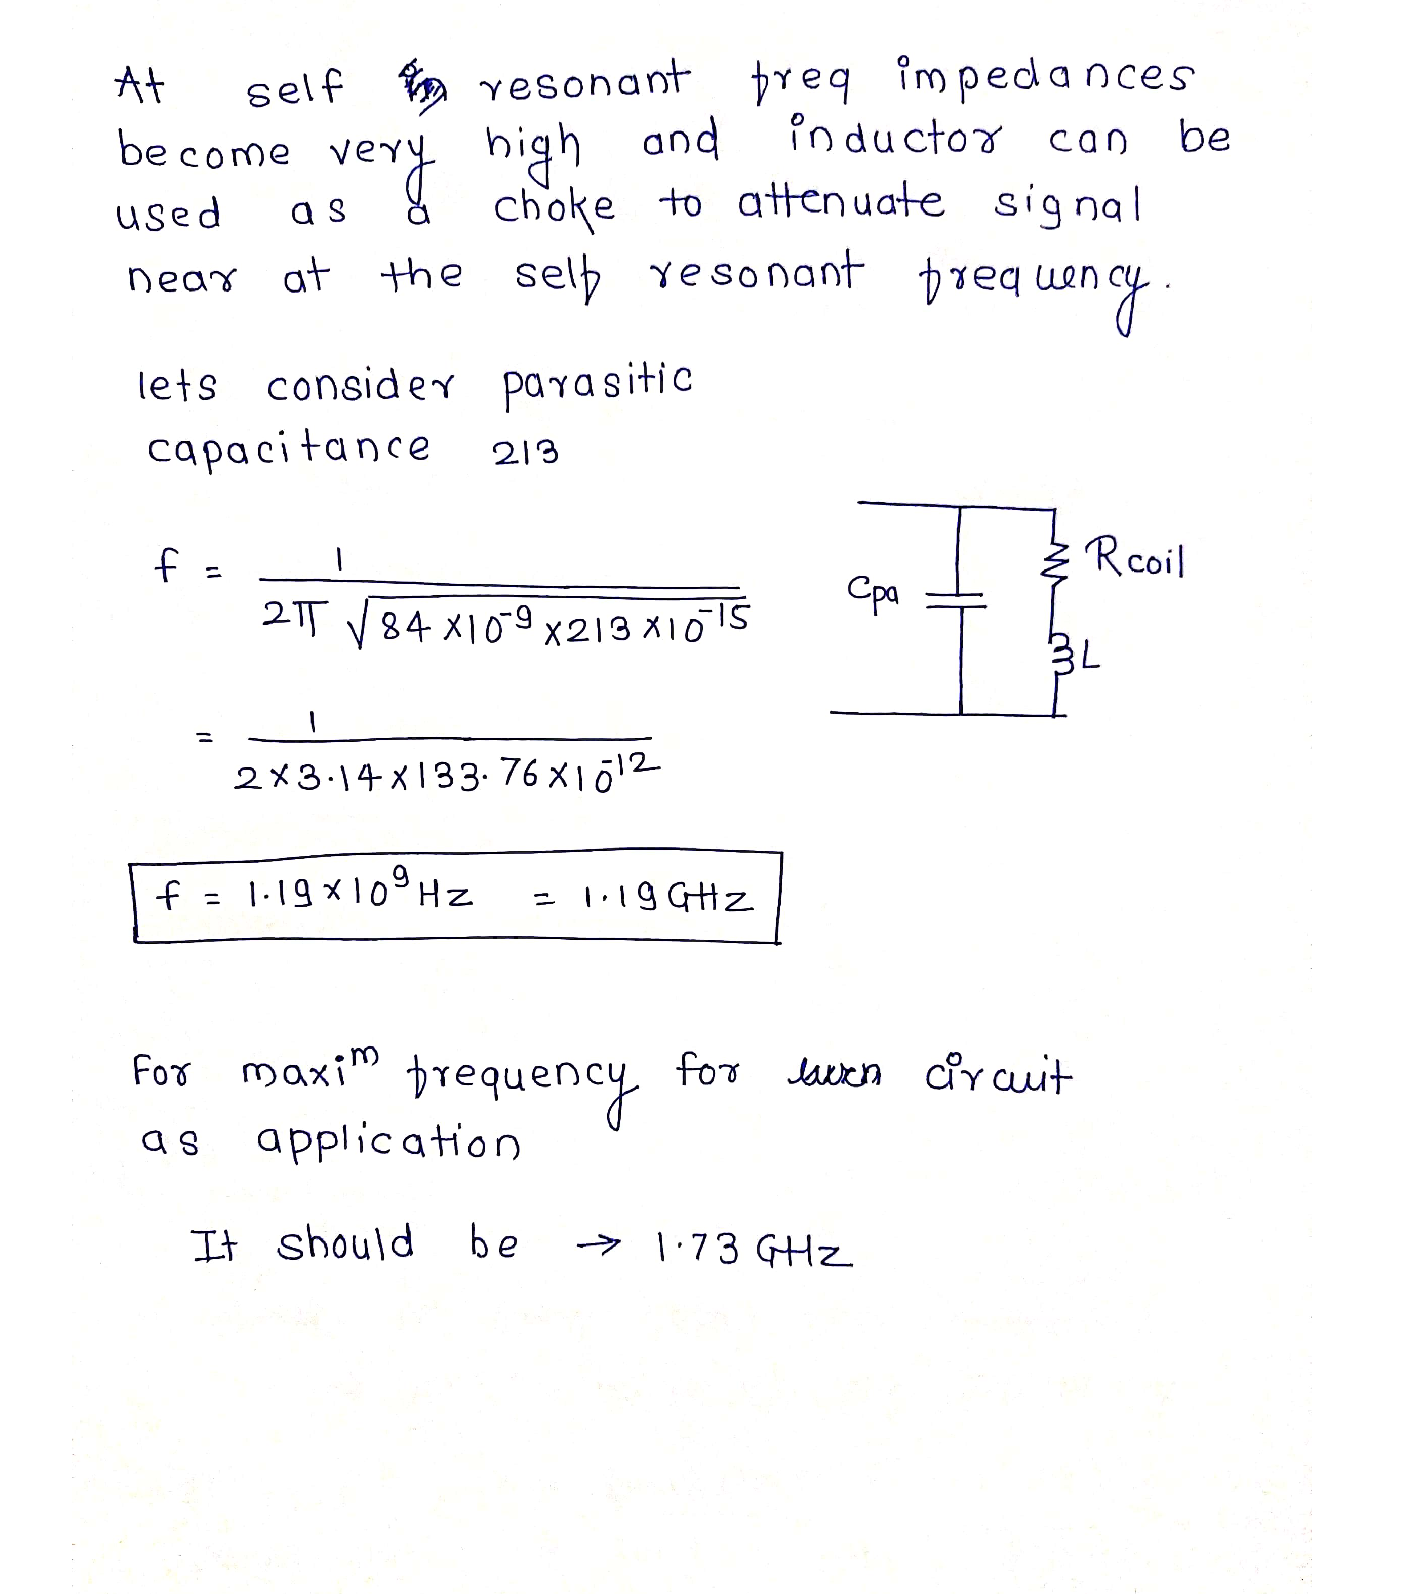 At self resonant freq impedances
become very high and inductor can be
used as a choke to attenuate signal
near at the self resonant frequency.
lets consider parasitic
capacitance 213
f = 1 / 2π √84 × 10⁻⁹ × 213 × 10⁻¹⁵
Cpa
Rcoil
L
= 1 / 2×3.14×133.76×10⁻¹²
f = 1.19 × 10⁹ Hz = 1.19 GHz
For maxiᵐ frequency for circuit
as application
It should be → 1.73 GHz